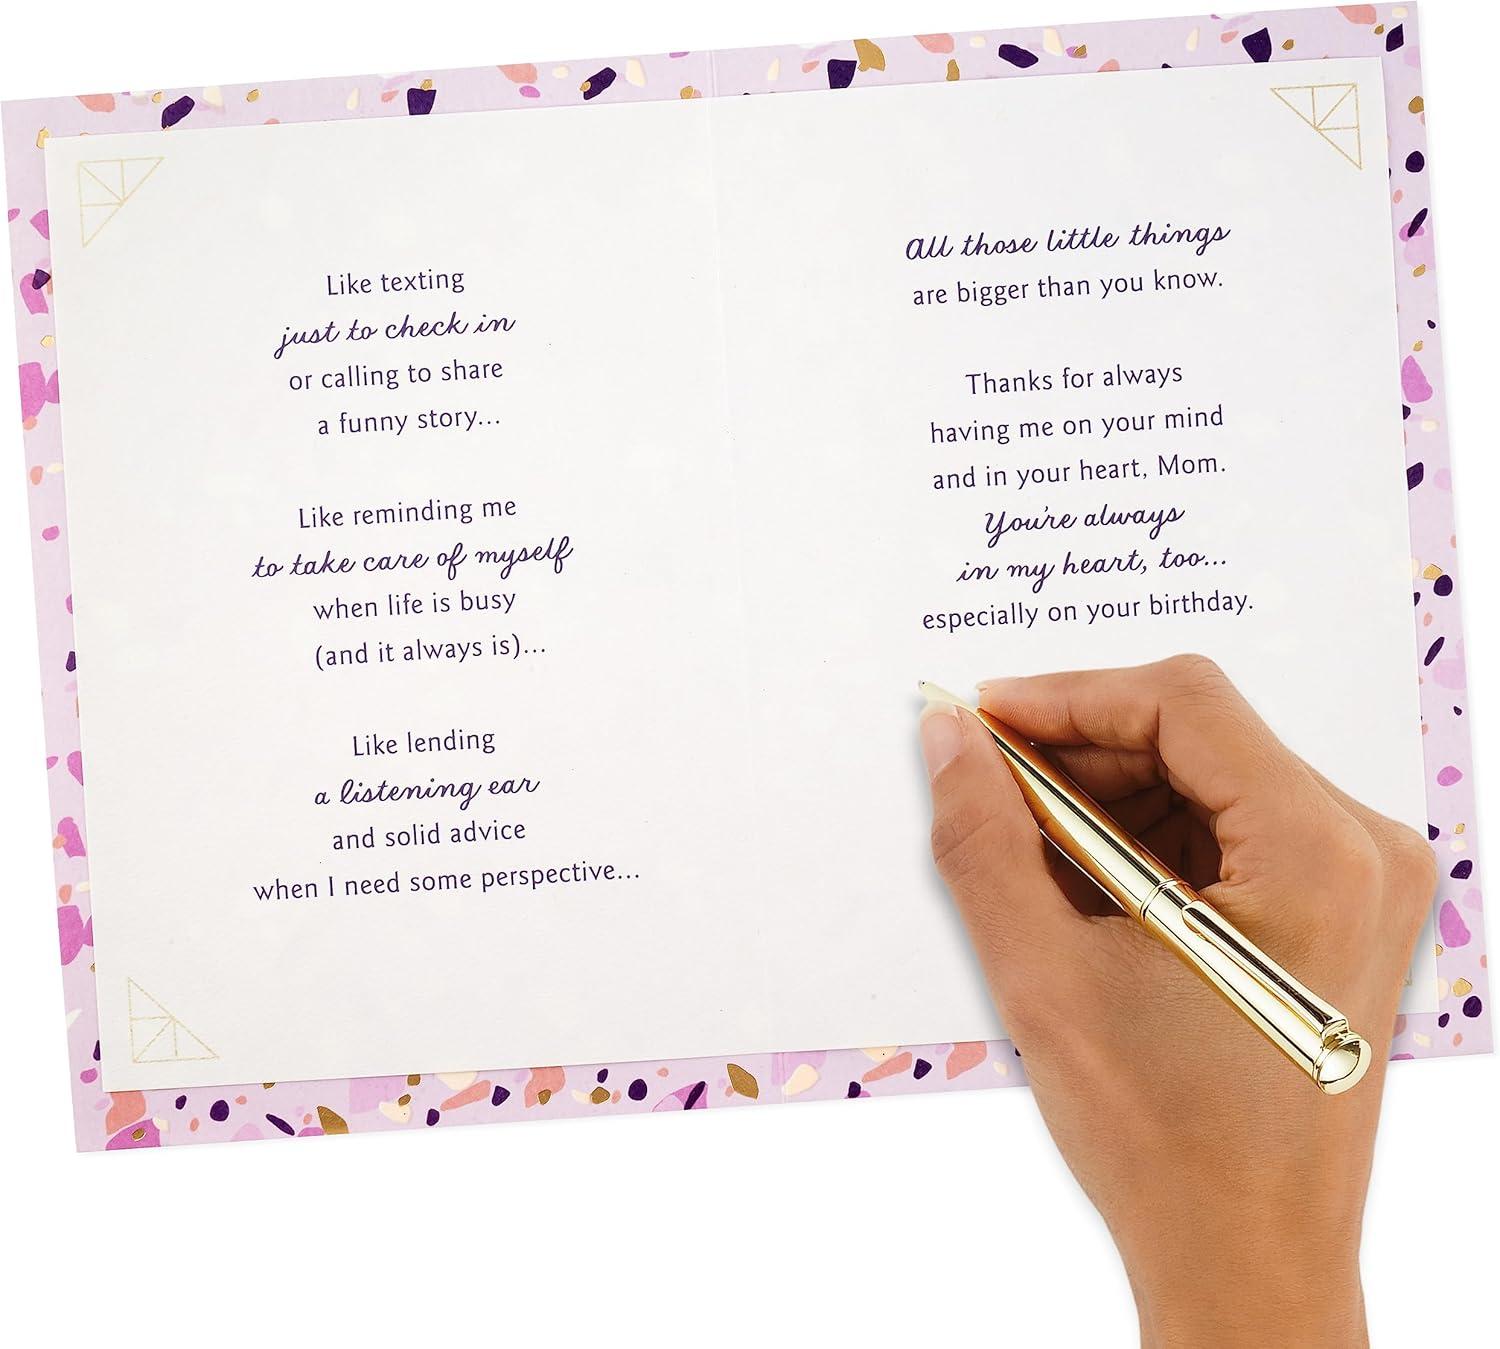 Like texting
just to check in
or calling to share
a funny story...
Like reminding me
to take care of myself
when life is busy
(and it always is)...
Like lending
a listening ear
and solid advice
when I need some perspective...
All those little things
are bigger than you know.
Thanks for always
having me on your mind
and in your heart, Mom.
You're always
in my heart, too...
especially on your birthday.